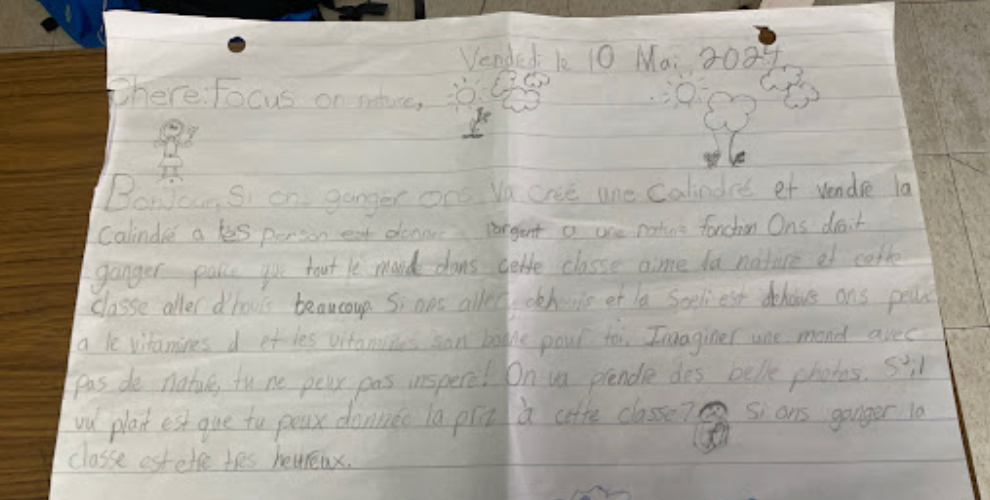 Vendredi le 10 Mai 2024
Chere: Focus on nature,
Bonjour, Si ons ganger ons va creé une Calindré et vendre la
Calindré a les person est donner l'argent a une nature fonction Ons droit
ganger parce que tout le monde dans cette classe aime la nature et cette
classe aller d'hours beaucoup. Si ons aller dehours et la soeli est dehours ons peux
a le vitamines d et les vitamines son bonne pour toi. Imaginer une mond avec
pas de nature, tu ne peux pas inspere! On va prendre des belle photos. S'il
vu plait est que tu peux donnée la priz à cette classe? Si ons ganger la
classe est être tres heureux.